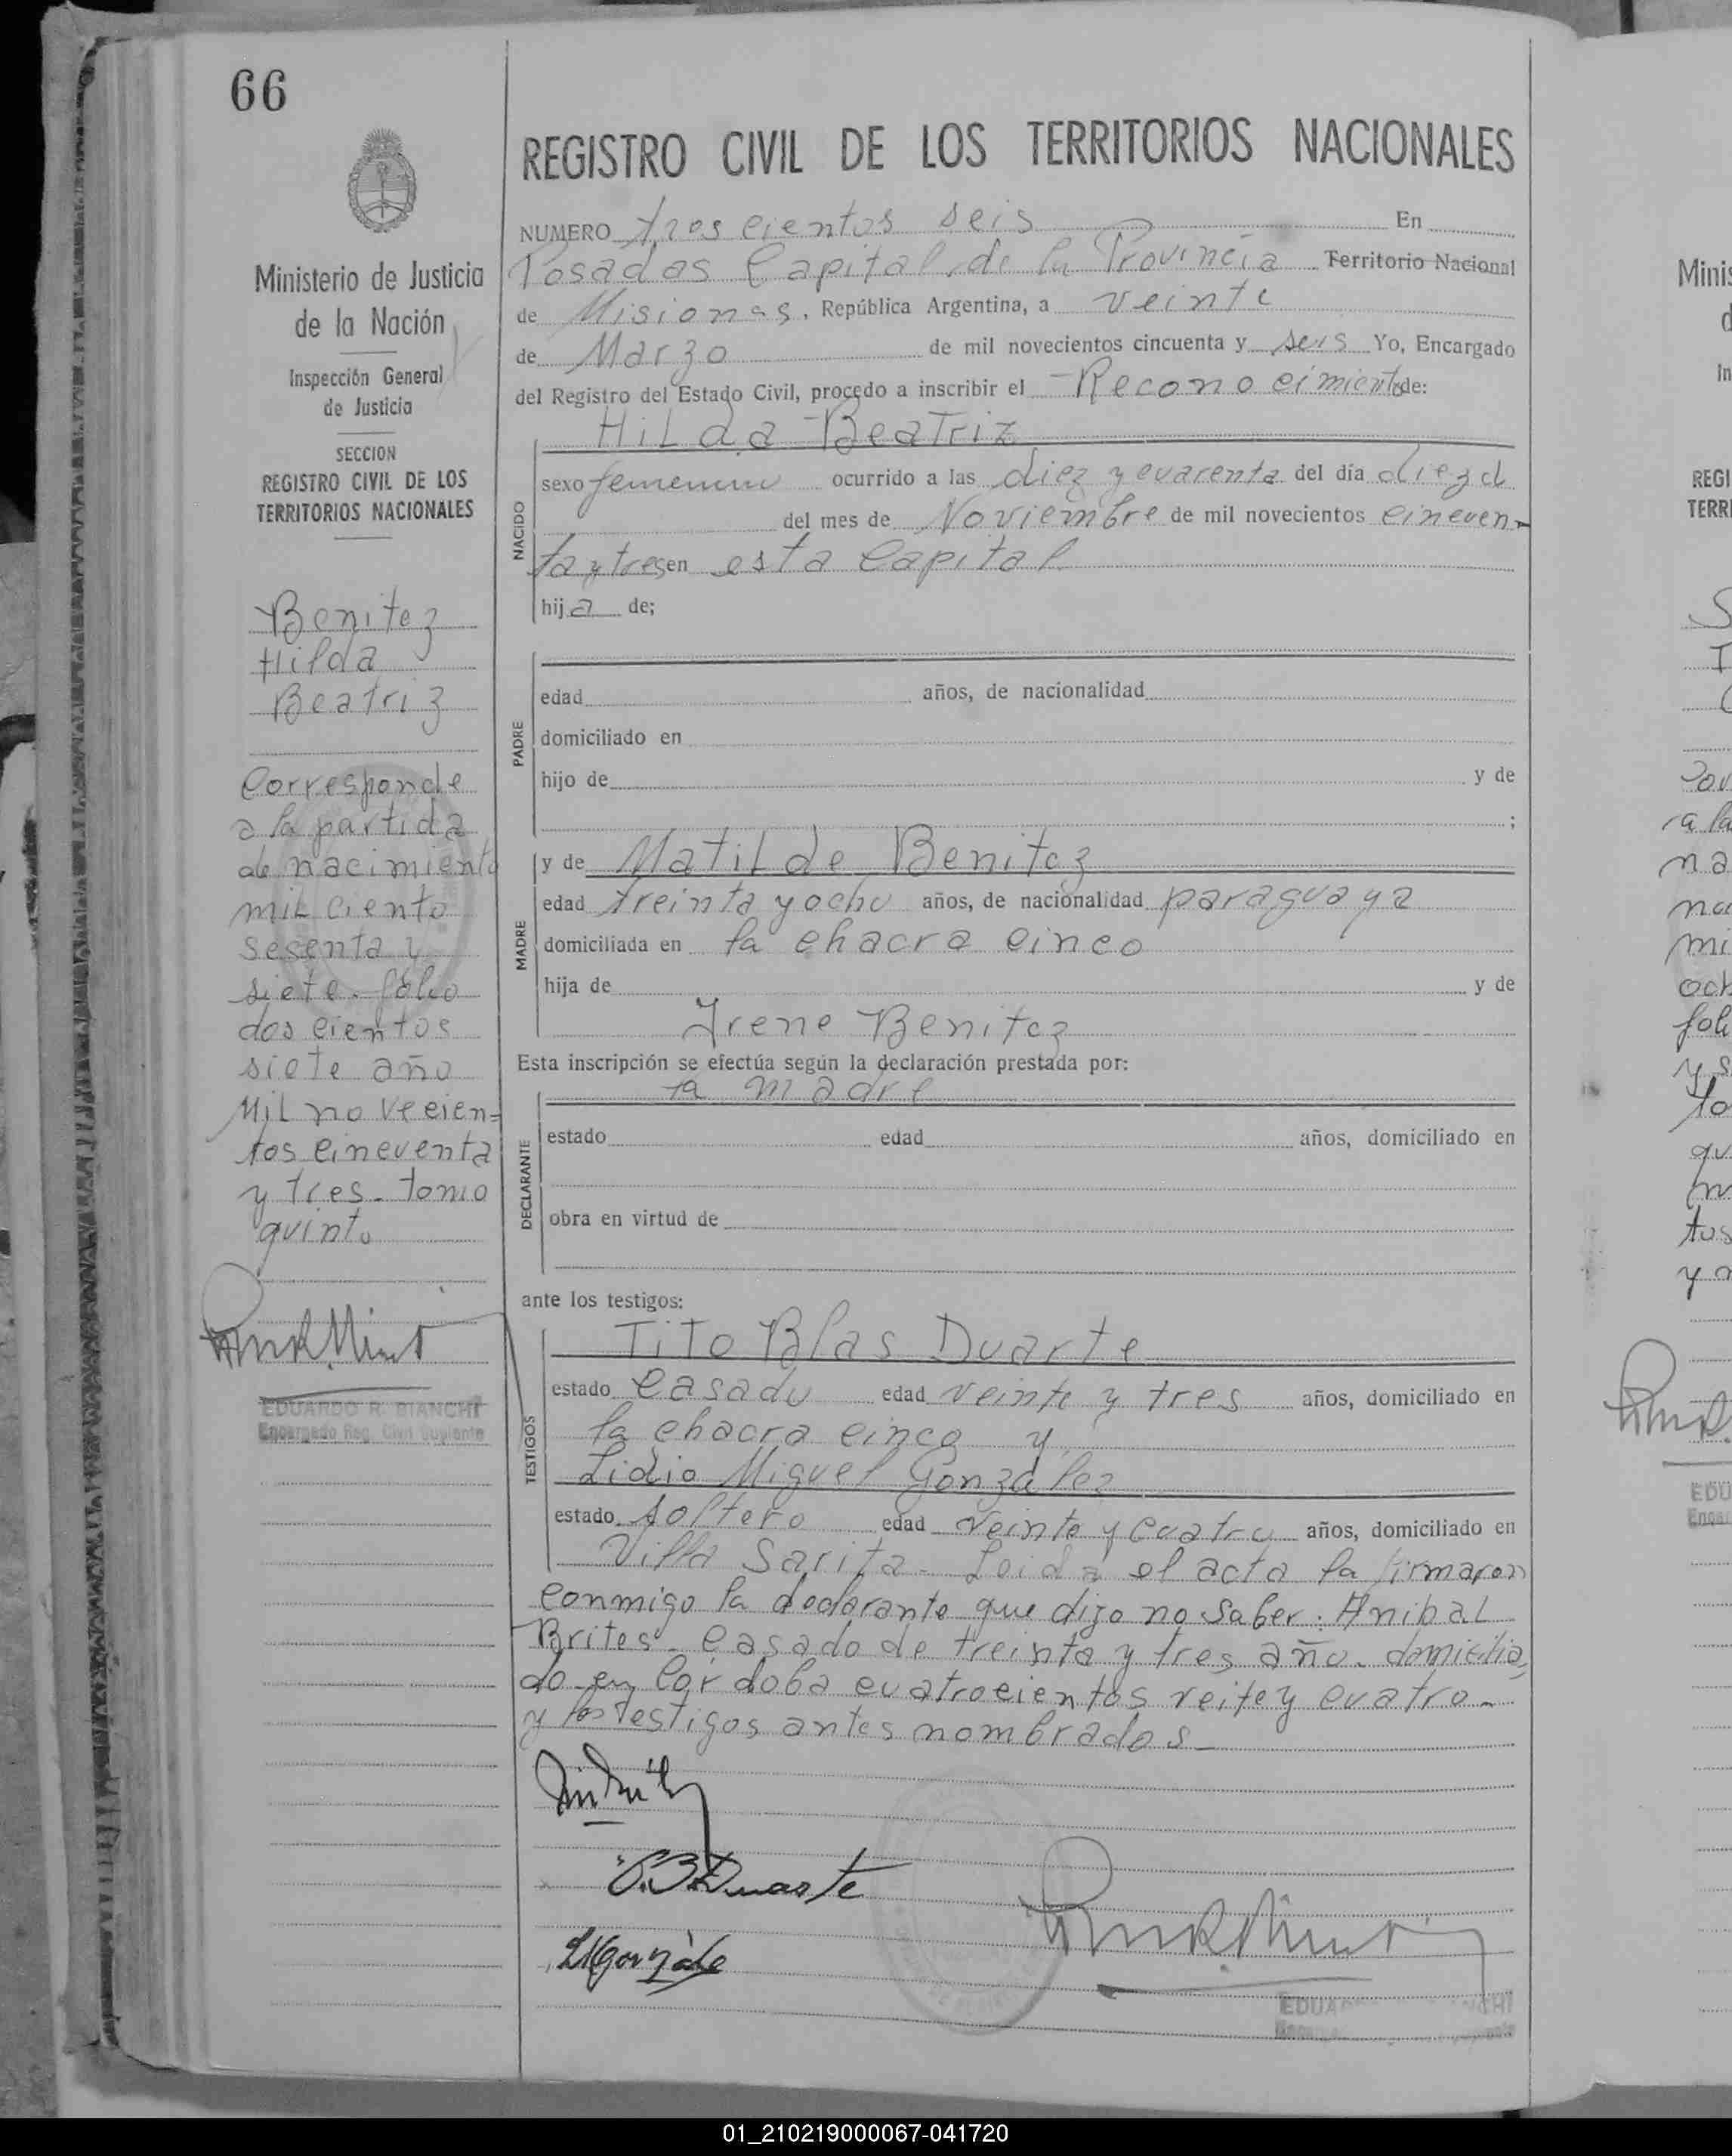 66
Ministerio de Justicia
de la Nación
Inspección General
de Justicia
SECCION
REGISTRO CIVIL DE LOS
TERRITORIOS NACIONALES
Benitez
Hilda
Beatriz
Corresponde
a la partida
de nacimiento
mil ciento
sesenta y
siete. folio
dos cientos
siete año
Mil no vecien=
tos cincuenta
y tres. tomo
quinto
EDUARDO R. BIANCHI
Encargado Reg. Civil Suplente
REGISTRO CIVIL DE LOS TERRITORIOS NACIONALES
NUMERO tres cientos seis En
Posadas Capital de la Provincia Territorio Nacional
de Misiones, República Argentina, a veinte
de Marzo de mil novecientos cincuenta y seis Yo, Encargado
del Registro del Estado Civil, procedo a inscribir el Reconocimiento de:
Hilda Beatriz
NACIDO
sexo femenino ocurrido a las diez y cuarenta del día diez d
del mes de Noviembre de mil novecientos cincuen-
ta y tres en esta Capital.
hija de;
PADRE
edad años, de nacionalidad
domiciliado en
hijo de y de
;
MADRE
y de Matilde Benitez
edad treinta y ocho años, de nacionalidad paraguaya
domiciliada en la chacra cinco
hija de y de
Irene Benitez
Esta inscripción se efectúa según la declaración prestada por:
la madre
DECLARANTE
estado edad años, domiciliado en
obra en virtud de
ante los testigos:
TESTIGOS
Tito Blas Duarte
estado casado edad veinte y tres años, domiciliado en
la chacra cinco y
Lidio Miguel Gonzalez
estado soltero edad veinte y cuatro años, domiciliado en
Villa Sarita. Leida el acta la firmaron
conmigo la declarante que dijo no saber. Anibal
Brites. casado de treinta y tres año. domicilia
do en Cordoba cuatrocientos veite y cuatro-
y los testigos antes nombrados-
T.B.Duarte
LMGonzále
EDUAR ANCHI
01_210219000067-041720